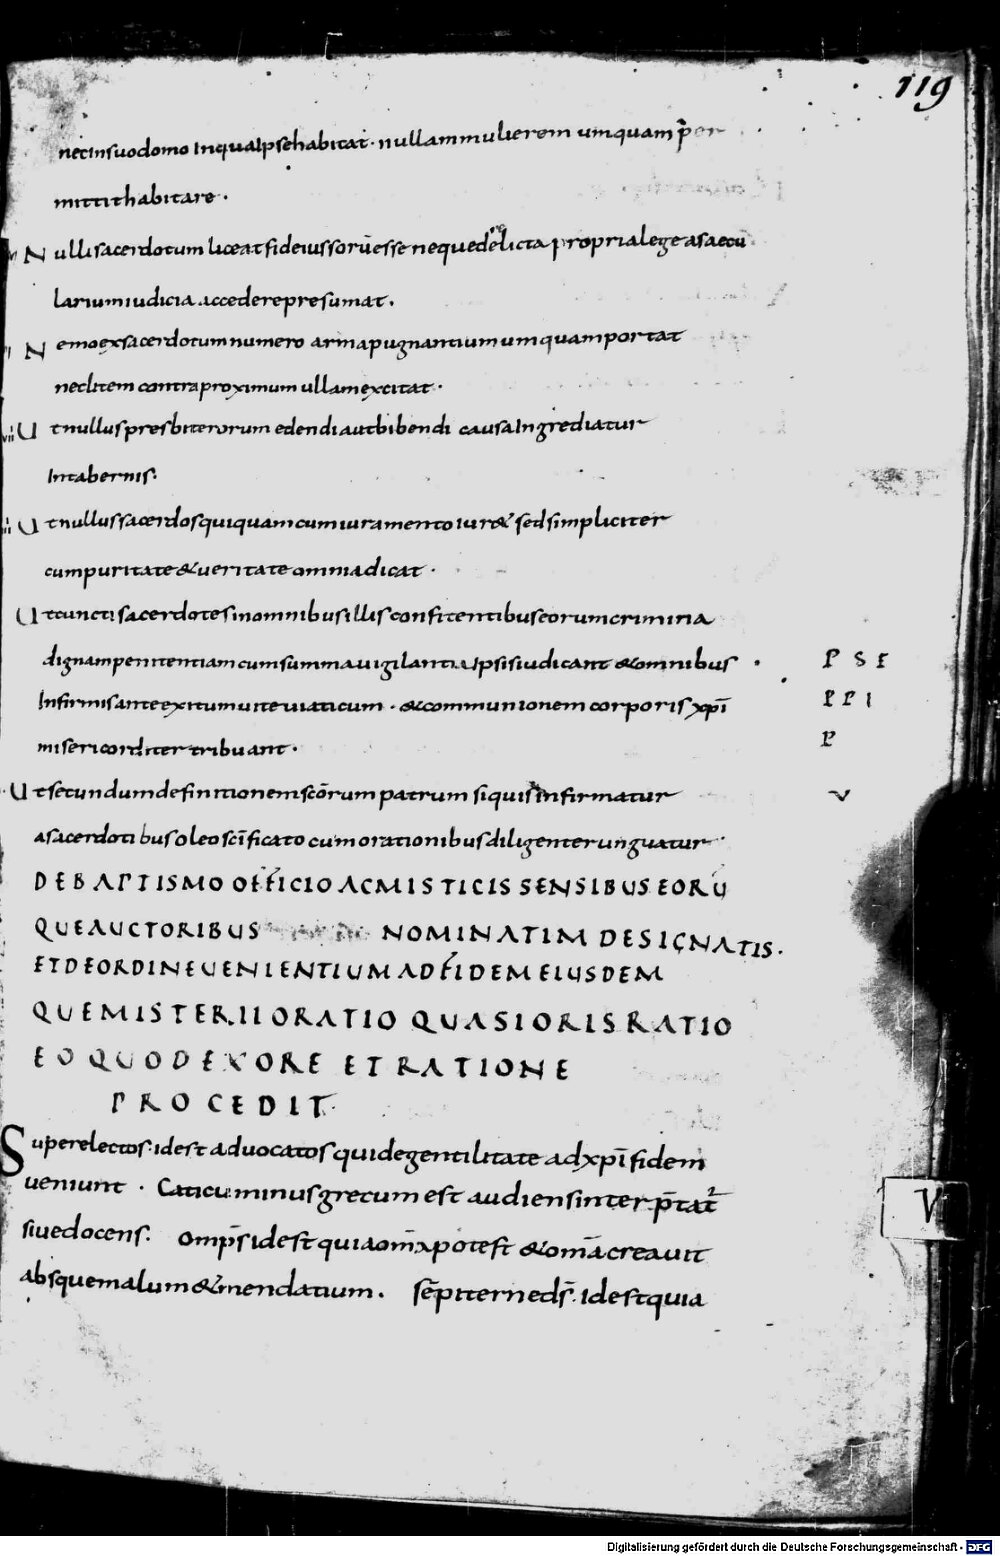 119
necinsuodomo inquaipsehabitat · nullammulierem umquam per
mittithabitare ·
N ullisacerdotum liceatfideiussorūesse nequedelicta proprialegeasaecu
lariumiudicia accederepresumat .
N emoexsacerdotumnumero armapugnantiumumquamportat
neclitem contraproximum ullamexcitat ·
vii U tnulluspresbiterorum edendiautbibendi causaingrediatur
intabernis .
U tnullussacerdosquiquamcumiuramentoiur& sedsimpliciter
cumpuritate&ueritate omniadicat ·
U tcunctisacerdotesinomnibusillisconfitentibuseorumcrimina
dignampenitentiamcumsummauigilantiaipsisiudicant &omnibus · P S F
Infirmisanteexitumuiteuiaticum · &communionemcorporisxp̄i P P I
misericorditertribuant · P
· U tsecundumdefinitionemscōrum patrum siquisinfirmatur v
asacerdotibusoleosc̄ificato cumorationibusdiligenterunguatur ·
DEBAPTISMO OFFICIO ACMISTICIS SENSIBUS EORŪ
QUEAUCTORIBUS NOMINATIM DESIGNATIS .
ETDEORDINEUENIENTIUM ADFIDEM EIUSDEM
QUEMISTERII ORATIO QUASI ORIS RATIO
EO QUOD EXORE ET RATIONE
PROCEDIT .
Superelectos · idest aduocatos quidegentilitate adxp̄ifidem
ueniunt · Caticuminusgrecum est audiensinterp̄tat̄
siuedocens . omp̄s idest quiaom̄ia potest &om̄acreauit
absquemalum&mendatium . sēpiterneds̄ . idestquia
V
Digitalisierung gefördert durch die Deutsche Forschungsgemeinschaft - DFG